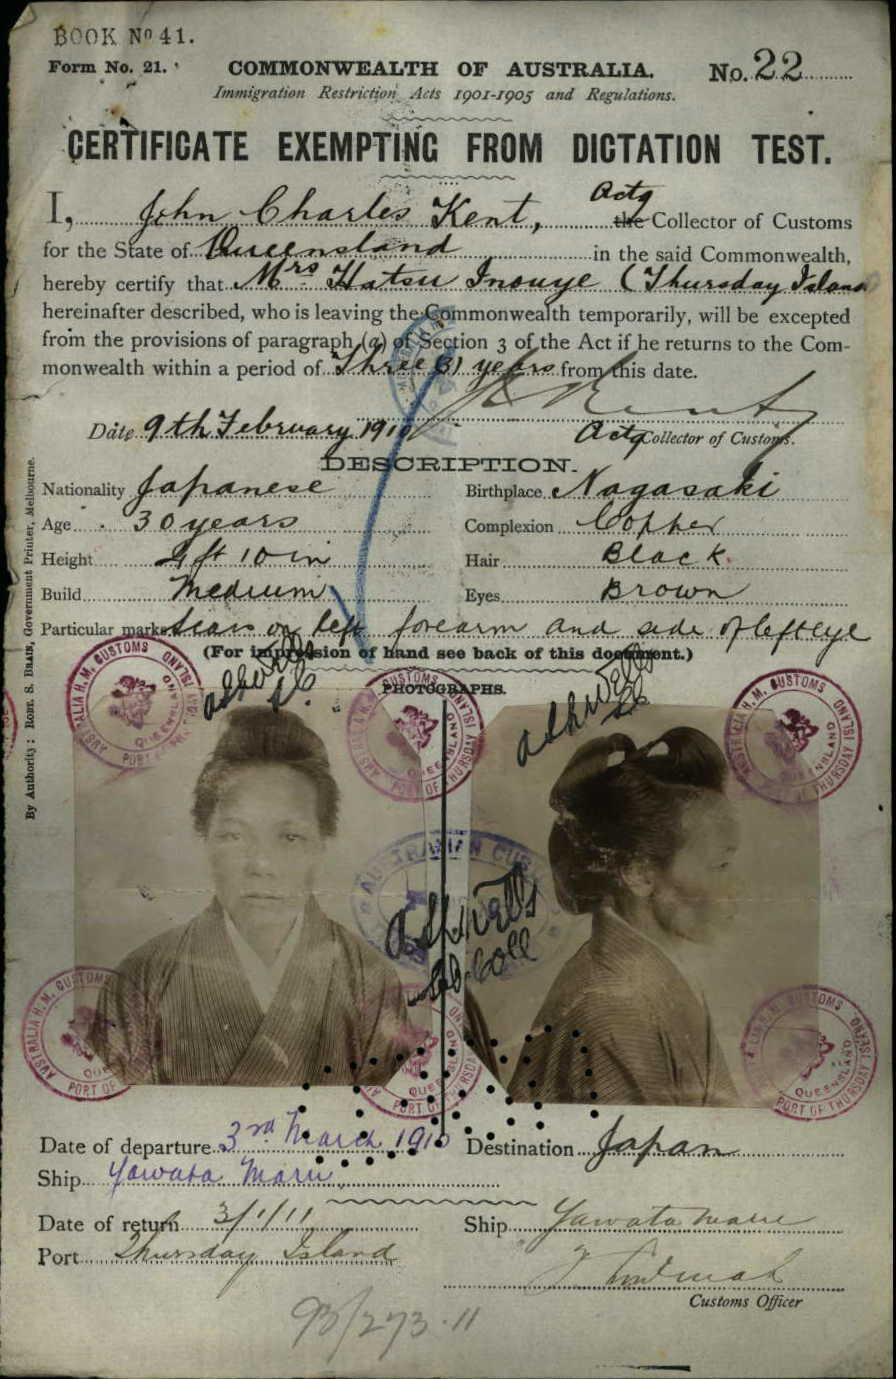 BOOK Nº 41.
Form No. 21.
COMMONWEALTH OF AUSTRALIA.
No. 22
Immigration Restriction Acts 1901-1905 and Regulations.
CERTIFICATE EXEMPTING FROM DICTATION TEST.
I, John Charles Kent, Actg the Collector of Customs
for the State of Queensland in the said Commonwealth,
hereby certify that Mrs Hatsu Inouye (Thursday Island
hereinafter described, who is leaving the Commonwealth temporarily, will be excepted
from the provisions of paragraph (a) of Section 3 of the Act if he returns to the Com-
monwealth within a period of Three (3) years from this date.
Date 9th February 1910
Kent
Actg Collector of Customs.
DESCRIPTION.
Nationality Japanese Birthplace Nagasaki
Age 30 years Complexion Copper
Height 4 ft 10 in Hair Black.
Build Medium Eyes Brown
Particular marks Scars on left forearm and side of left eye
(For impression of hand see back of this document.)
PHOTOGRAPHS.
By Authority: ROBT. S. BRAIN, Government Printer, Melbourne.
AUSTRALIA H. M. CUSTOMS
QUEENSLAND
PORT OF THURSDAY ISLAND
Date of departure 3rd March 1910 Destination Japan
Ship Yawata Maru
Date of return 3/1/11 Ship Yawata Maru
Port Thursday Island
Customs Officer